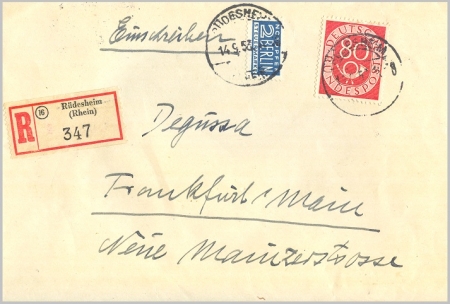 Einschreiben
RÜDESHEIM
14.9.53
NOTOPFER
2 BERLIN
STEUERMARKE
80
DEUTSCHE
BUNDESPOST
R
16
Rüdesheim
(Rhein)
347
Degussa
Frankfurt/Main
Neue Mainzerstrasse